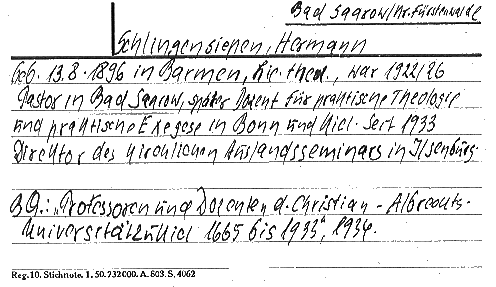 Bad Saarow/Kr. Fürstenwalde
Schlingensiepen, Hermann
Geb. 13.8.1896 in Barmen, Lic. theol., war 1922/26
Pastor in Bad Saarow, später Dozent für praktische Theologie
und praktische Exegese in Bonn und Kiel. Seit 1933
Direktor des kirchlichen Auslandsseminars in Ilsenburg.
BQ.: „Professoren und Dozenten d. Christian-Albrechts-
Universität zu Kiel 1665 bis 1933", 1934.
Reg. 10. Stichnote. 1. 50. 732000. A. 803. S. 4062